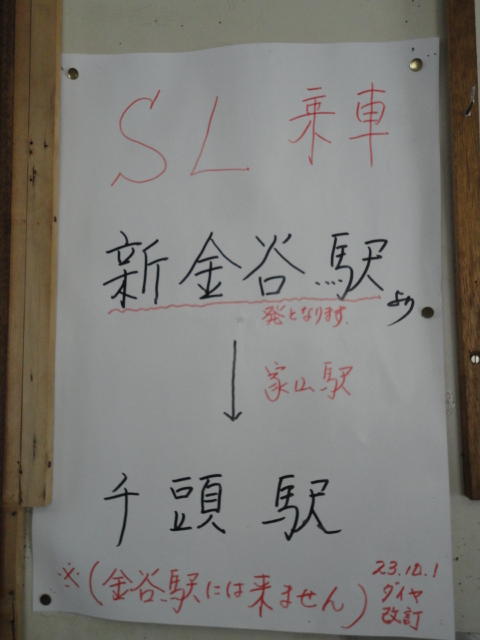 SL 乗車
新金谷駅より
発となります.
↓ 家山駅
千頭駅
※(金谷駅には来ません)
23.10.1
ダイヤ
改訂